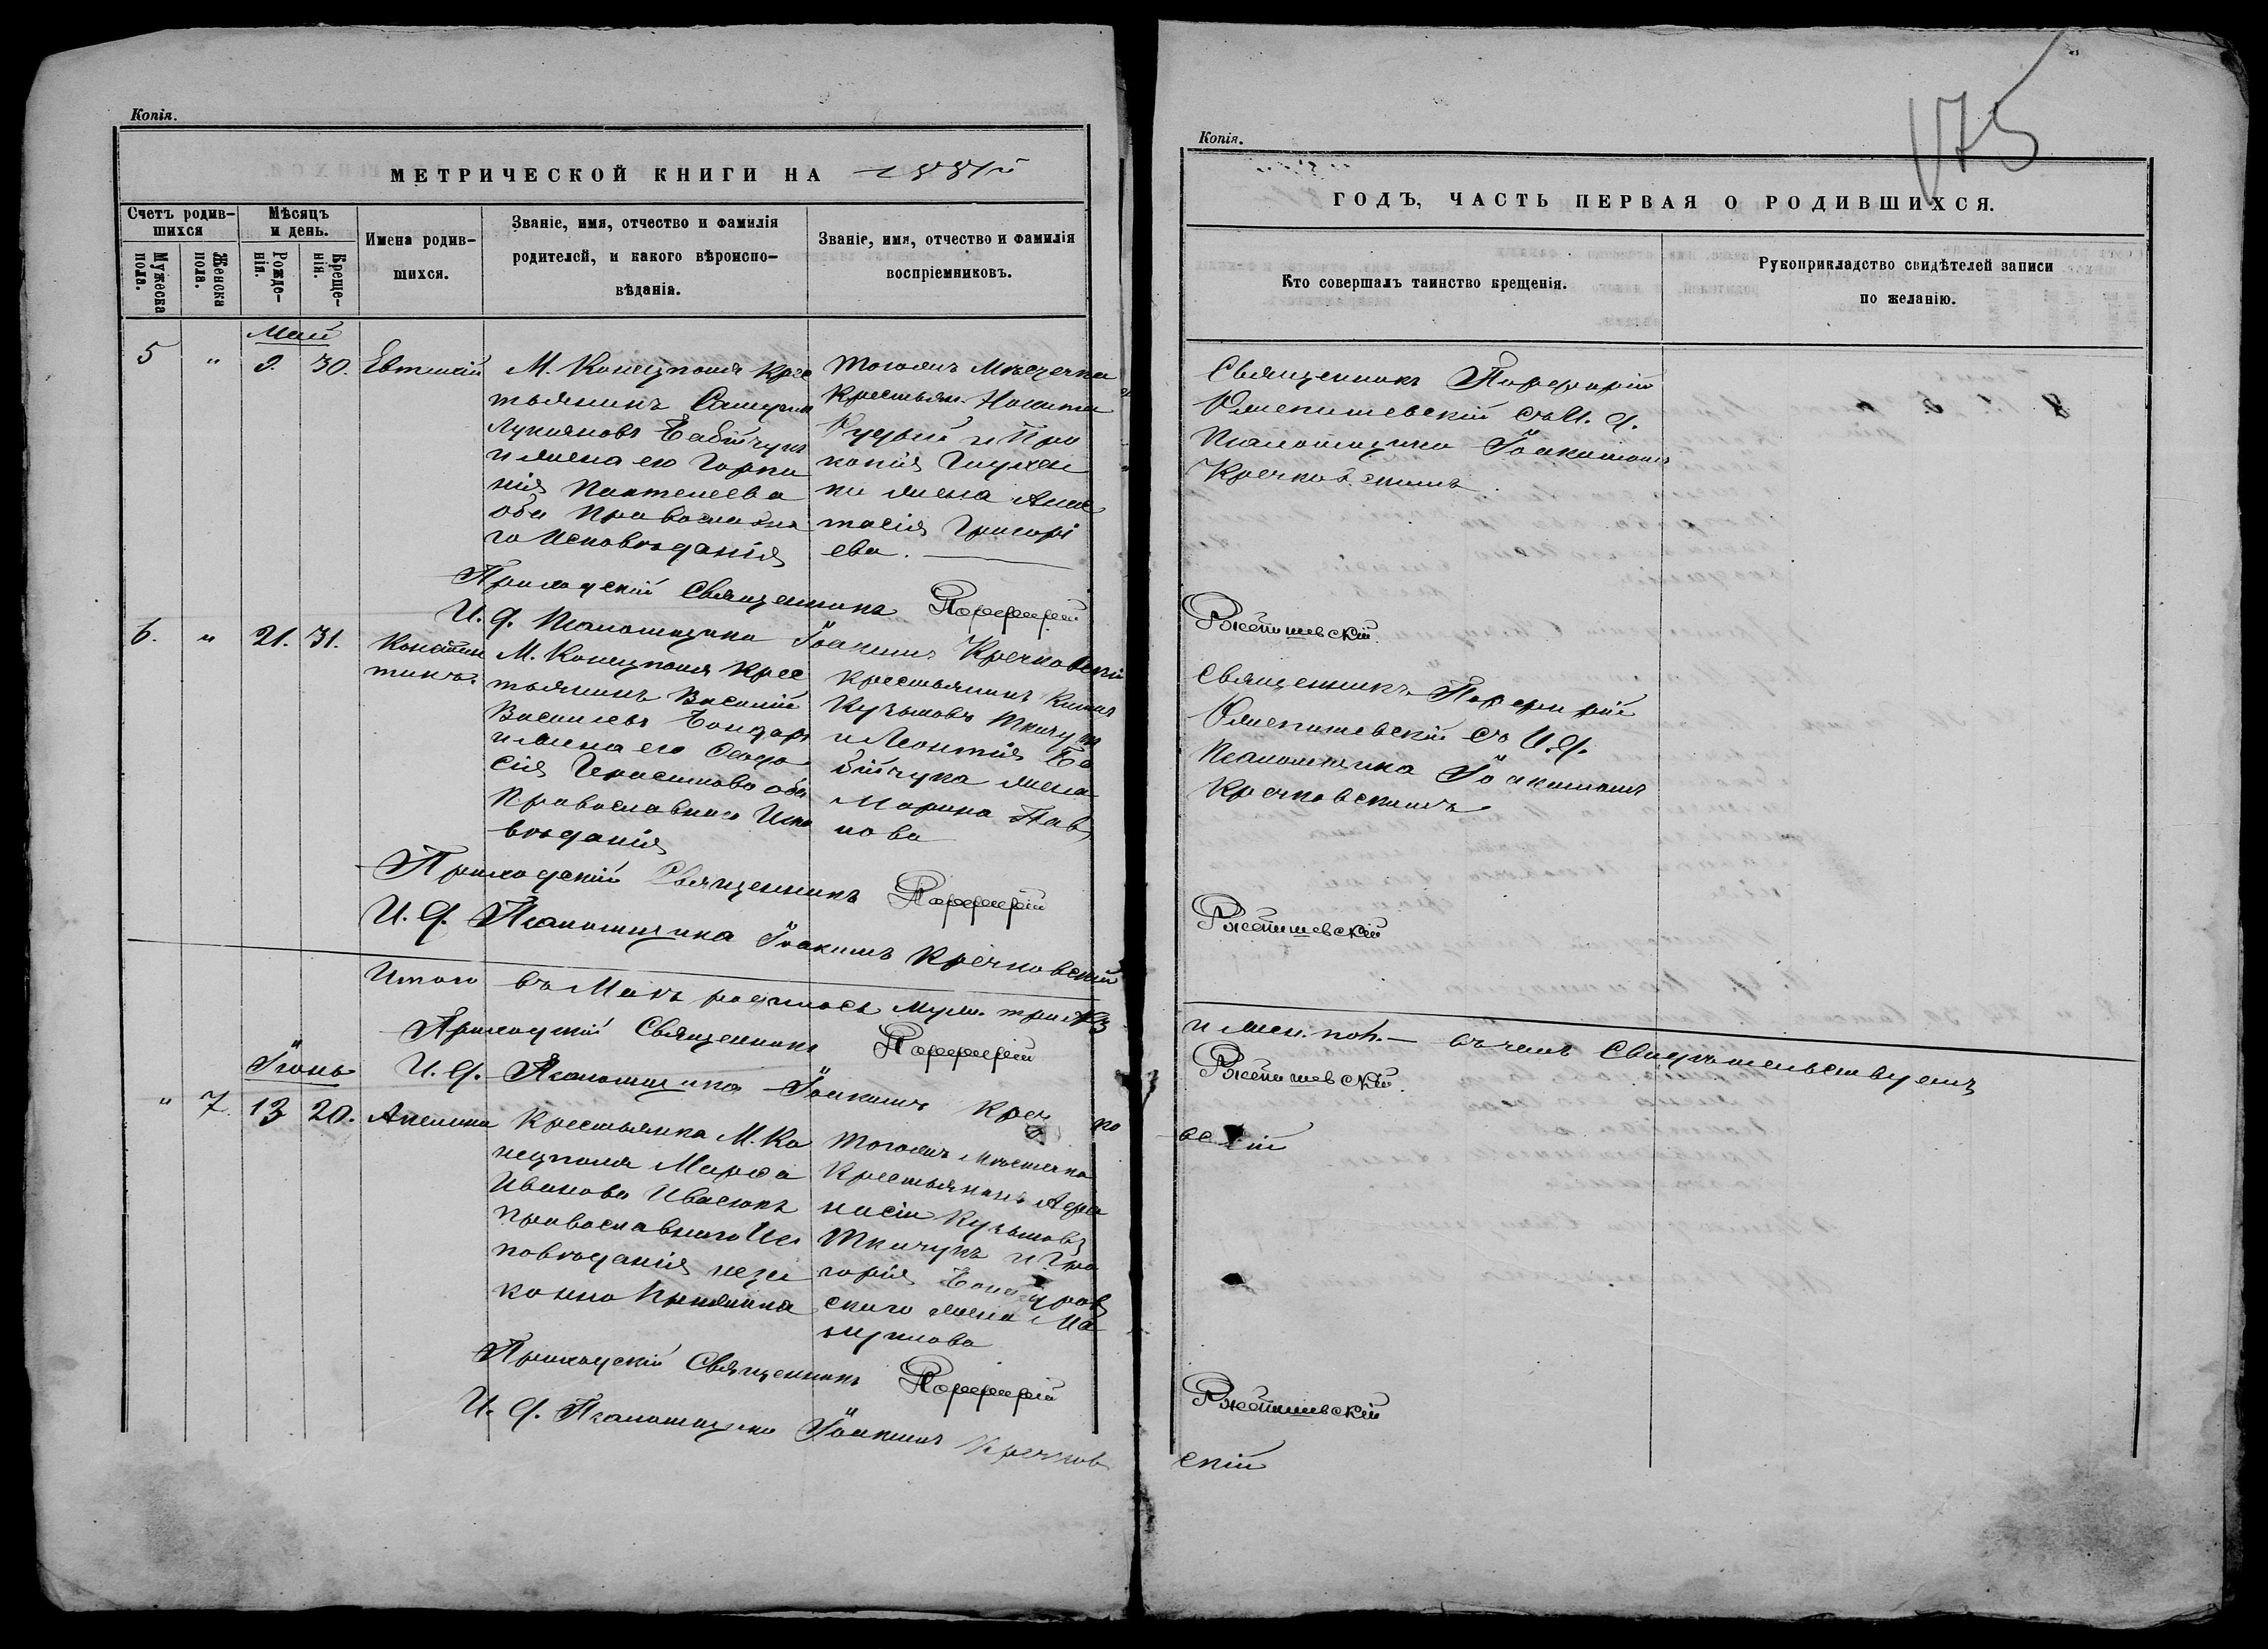 Копія.
МЕТРИЧЕСКОЙ КНИГИ НА 1881й
Счетъ родив-
шихся
Мѣсяцъ
и день.
Мужеска
пола.
Женска
пола.
Рожде-
нія.
Креще-
нія.
Имена родив-
шихся.
Званіе, имя, отчество и фамилія
родителей, и какого вѣроиспо-
вѣданія.
Званіе, имя, отчество и фамилія
воспріемниковъ.
Май
5 " 9. 30. Евтихій
М. Концполя Крес
тьянинъ
Лукіановъ Бабійчукъ
и жена его Горпи
нія Пантелеева
оба Православна
го Исповѣданія
Тогожъ Мѣстечка
Крестьян. Никита
и Про
копія
жена Анас
тасія Григорі
ева.
Приходскій Священникъ Порфирій
И. д. Псаломщика Іоакимъ Кречковскій
6. " 21. 31. Констан
тинъ.
М. Концполя Крес
тьянинъ Василій
Васильевъ Бондарь
и жена его Феодо
сія Герасимова оба
Православнаго Испо
вѣданія
Крестьянинъ
Кузьмовъ Ткачукъ
и Леонтія Ба
бійчука жена
Марина Пав
лова
Приходскій Священникъ Порфирій
И. д. Псаломщика Іоакимъ Кречковскій
Итого въ Маѣ родилось муж. три 3
Приходскій Священникъ Порфирій
И. д. Псаломщика Іоакимъ Креч ко
Іюнь
" 7. 13 20. Акелина
Крестьянка М. Ко
нцполя Марфа
Иванова Ивасюкъ
Православнаго Ис
повѣданія неза
конно Прижила
Тогожъ Мѣстечка
Крестьянинъ Афа
насій Кузьмовъ
Ткачукъ и Гри
горія Бондаров
скаго жена Ма
Приходскій Священникъ Порфирій
И. д. Псаломщика Іоакимъ Кречков
175
Копія.
ГОДЪ, ЧАСТЬ ПЕРВАЯ О РОДИВШИХСЯ.
Кто совершалъ таинство крещенія.
Рукоприкладство свидѣтелей записи
по желанію.
Священникъ Порфирій
Ржепишевскій съ И. д.
Псаломщика Іоакимомъ
Кречковскимъ.
Ржепишевскій.
Священникъ Порфирій
Ржепишевскій съ И. д.
Псаломщика Іоакимомъ
Кречковскимъ
Ржепишевскій
и жен. пол. — въ чемъ Свидѣтельствуемъ
Ржепишевскій.
вскій
Ржепишевскій
скій